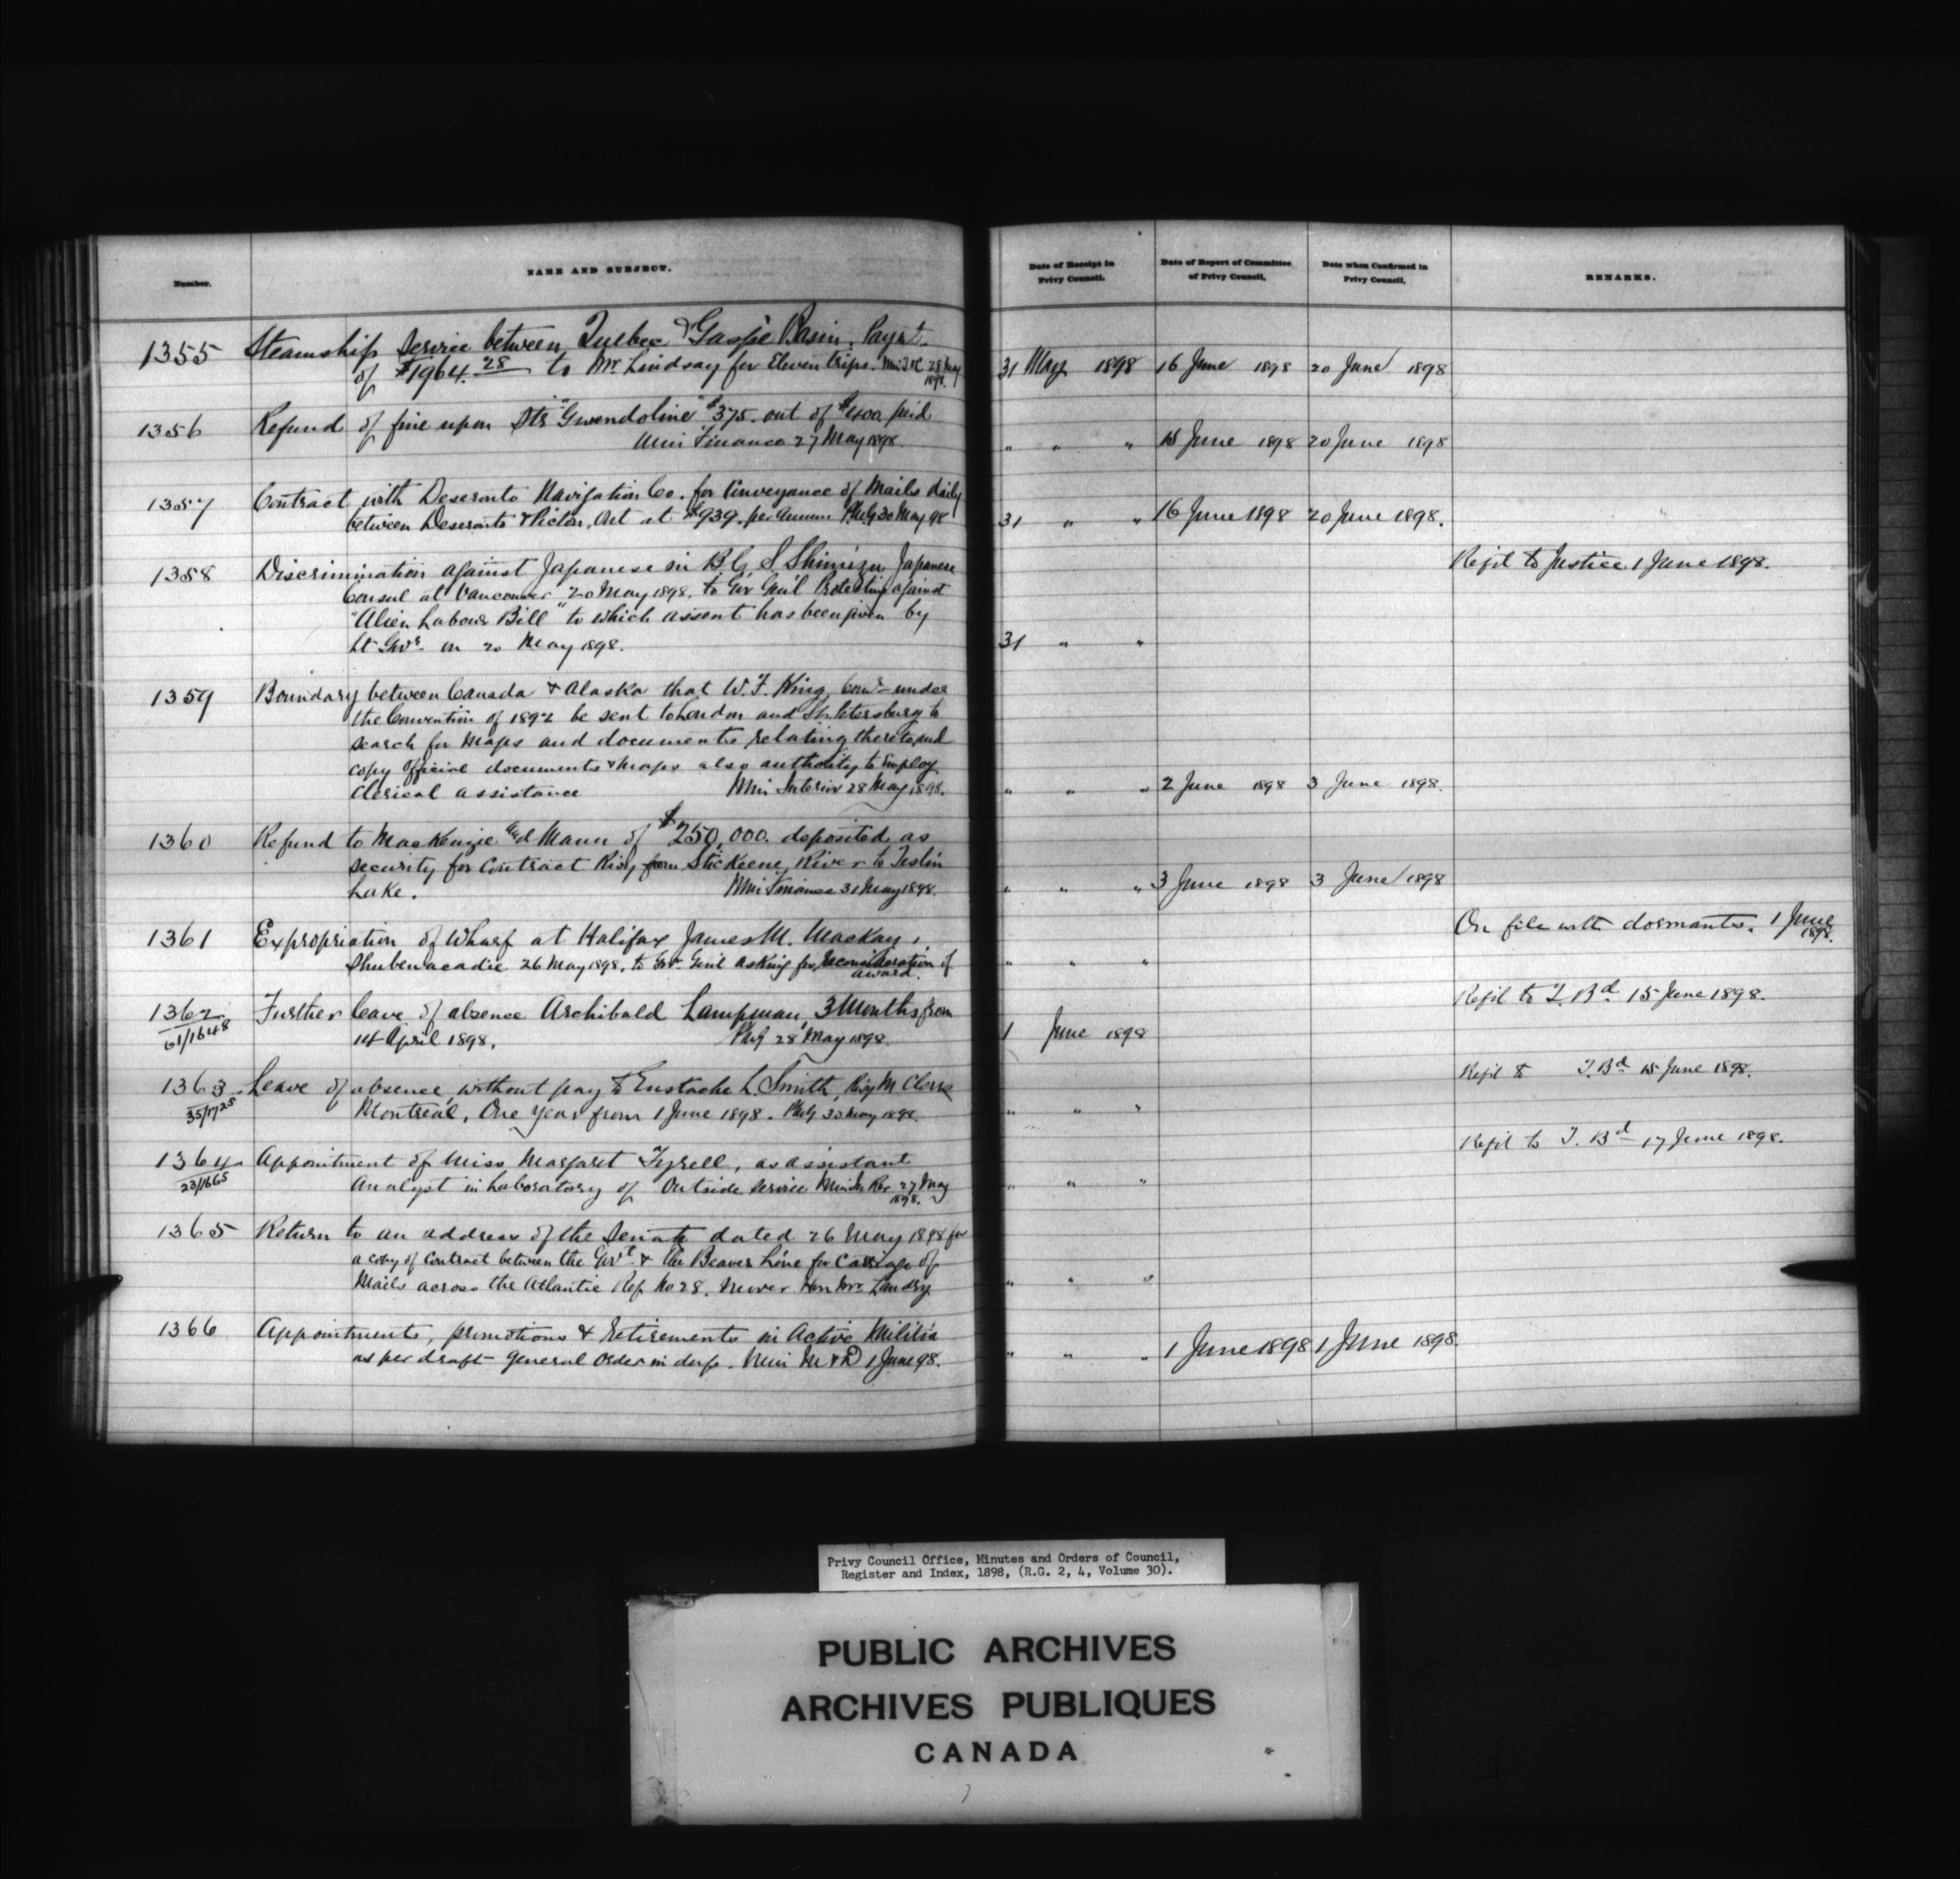 Number.
NAME AND SUBJECT.
Date of Receipt in Privy Council.
Date of Report of Committee of Privy Council.
Date when Confirmed in Privy Council.
REMARKS.
1355 Steamship Service between Quebec & Gaspé Basin. Paym't
of $1964.28 to Mr Lindsay for Eleven trips. Min T&C 28 May 1898. 31 May 1898 16 June 1898 20 June 1898
1356 Refund of fine upon Str "Gwendoline" $375. out of $400. paid
Min Finance 27 May 1898. " " " 15 June 1898 20 June 1898
1357 Contract with Deseronto Navigation Co. for Conveyance of Mails daily
between Deseronto & Picton, Ont at $939. per Annum PMG 30 May 98 31 " " 16 June 1898 20 June 1898.
1358 Discrimination against Japanese in B.C. S Shimizu Japanese Ref'd to Justice 1 June 1898.
Consul at Vancouver 20 May 1898. to Gov Gen'l Protesting against
"Alien Labour Bill" to which assent has been given by
Lt Govr on 20 May 1898. 31 " "
1359 Boundary between Canada & Alaska that W. F. King, Comr under
the Convention of 1892 be sent to London and St. Petersburg to
search for Maps and documents relating thereto, and
copy Official documents & maps also authority to Employ
Clerical assistance Min Interior 28 May 1898. " " " 2 June 1898 3 June 1898.
1360 Refund to MacKenzie and Mann of $250,000. deposited as
security for Contract Rlwy from Stickeene River to Teslin
Lake. Min Finance 31 May 1898. " " " 3 June 1898 3 June 1898
1361 Expropriation of Wharf at Halifax James M. MacKay, On file with dormants. 1 June 1898.
Shubenacadie 26 May 1898. to Gov. Genl asking for reconsideration of
award. " " "
1362 Further leave of absence Archibald Lampman, 3 Months from Ref'd to T. Bd. 15 June 1898.
61/1648 14 April 1898. PMG 28 May 1898 1 June 1898
1363 Leave of absence without pay to Eustache L. Smith, Rlwy M Clerk Ref'd to T. Bd 15 June 1898.
35/1725 Montreal, One Year from 1 June 1898. PMG 30 May 1898. " " "
1364 Appointment of Miss Margaret Tyrell, as assistant Ref'd to T. Bd 17 June 1898.
23/1665 Analyst in Laboratory of Outside Service Min In Rev 27 May 1898. " " "
1365 Return to an address of the Senate dated 26 May 1898 for
a copy of Contract between the Govt & the Beaver Line for Carriage of
Mails across the Atlantic Ref No 28. Mover Hon Mr. Landry " " "
1366 Appointments, promotions & retirements in Active Militia
as per draft General Order in dup. Min M & D 1 June 98. " " " 1 June 1898 1 June 1898.
Privy Council Office, Minutes and Orders of Council,
Register and Index, 1898, (R.G. 2, 4, Volume 30).
PUBLIC ARCHIVES
ARCHIVES PUBLIQUES
CANADA